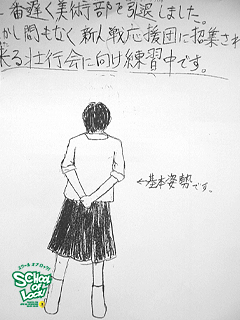 一番遅く美術部を引退しました。
かし間もなく新人戦応援団に招集され
来る壮行会に向け練習中です。
←基本姿勢です。
スクール オブ ロック!
SCHOOL
OF
LOCK!